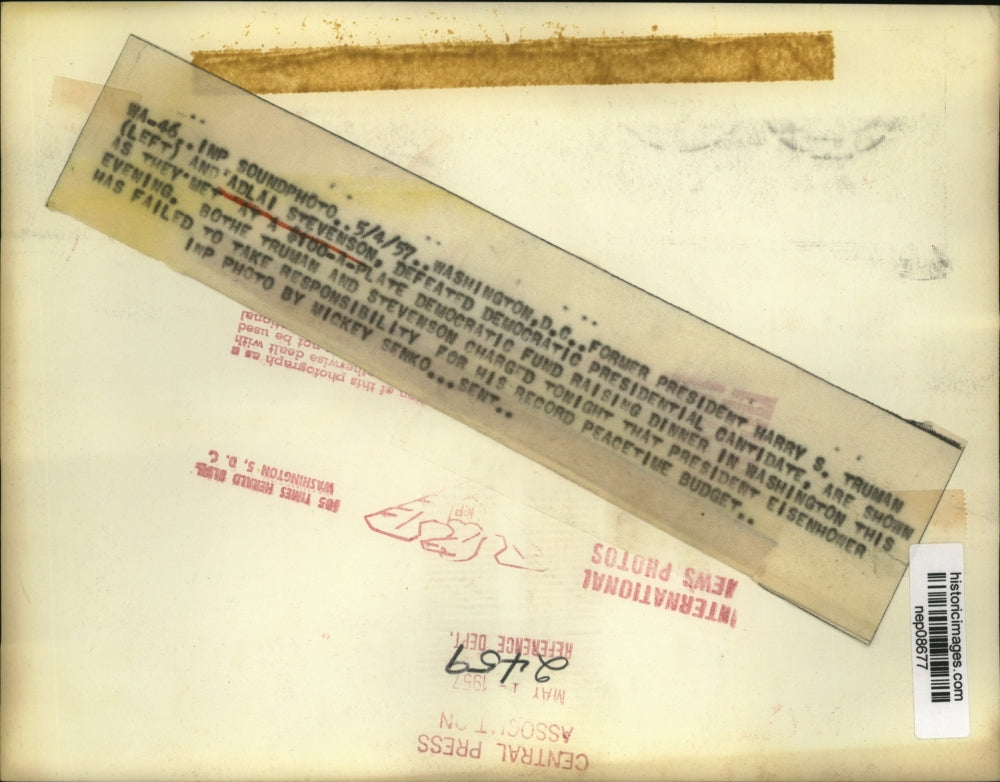 WA-46..INP SOUNDPHOTO..5/4/57..WASHINGTON,D.C..FORMER PRESIDENT HARRY S. TRUMAN
(LEFT) AND ADLAI STEVENSON, DEFEATED DEMOCRATIC PRESIDENTIAL CANTIDATE, ARE SHOWN
AS THEY MET AT A $100-A-PLATE DEMOCRATIC FUND RAISING DINNER IN WASHINGTON THIS
EVENING. BOTHE TRUMAN AND STEVENSON CHARGED TONIGHT THAT PRESIDENT EISENHOWER
HAS FAILED TO TAKE RESPONSIBILITY FOR HIS RECORD PEACETIME BUDGET..
INP PHOTO BY MICKEY SENKO...SENT..
of this photograph as a
otherwise dealt with
not be used
WASHINGTON 5, D. C.
TIMES HERALD BLDG.
INTERNATIONAL
NEWS PHOTOS
REFERENCE DEPT.
2459
MAY 1957
CENTRAL PRESS
historicimages.com
nep08677